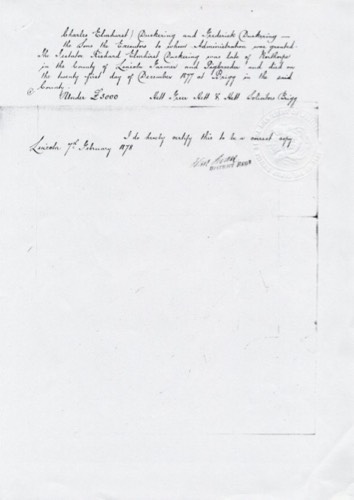 Charles Elmhirst Duckering and Frederick Duckering —
the Sons the Executors to whom Administration was granted.
The Testator Richard Elmhirst Duckering was late of
in the County of Lincoln Farmer and and died on
the twenty first day of December 1877 at Brigg in the said
County
Under £3000 Hett Freer Hett & Hett Solicitors Brigg
I do hereby certify this to be a correct copy
Lincoln 7th February 1878